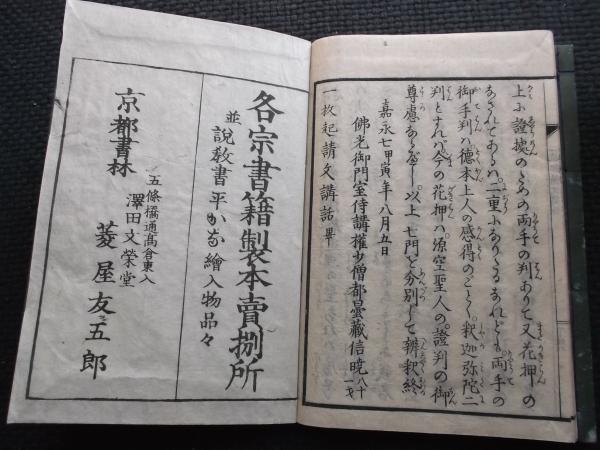 上に證據のための両手の判ありて又花押の
あるされてあるハ二重になりてるなれども両手の
御手判ハ徳本上人の感得のごとく釈迦弥陀二
判とすれバ今の花押ハ源空聖人の證判の御
尊慮あるべし以上七門を分別して辨釈終
嘉永七甲寅年八月五日
佛光御門室侍講權少僧都曇藏信曉八十一才
一枚起請文講話畢
各宗書籍製本賣捌所
並說教書平かな繪入物品々
京都書林
五條橋通高倉東入
澤田文榮堂
菱屋友五郎